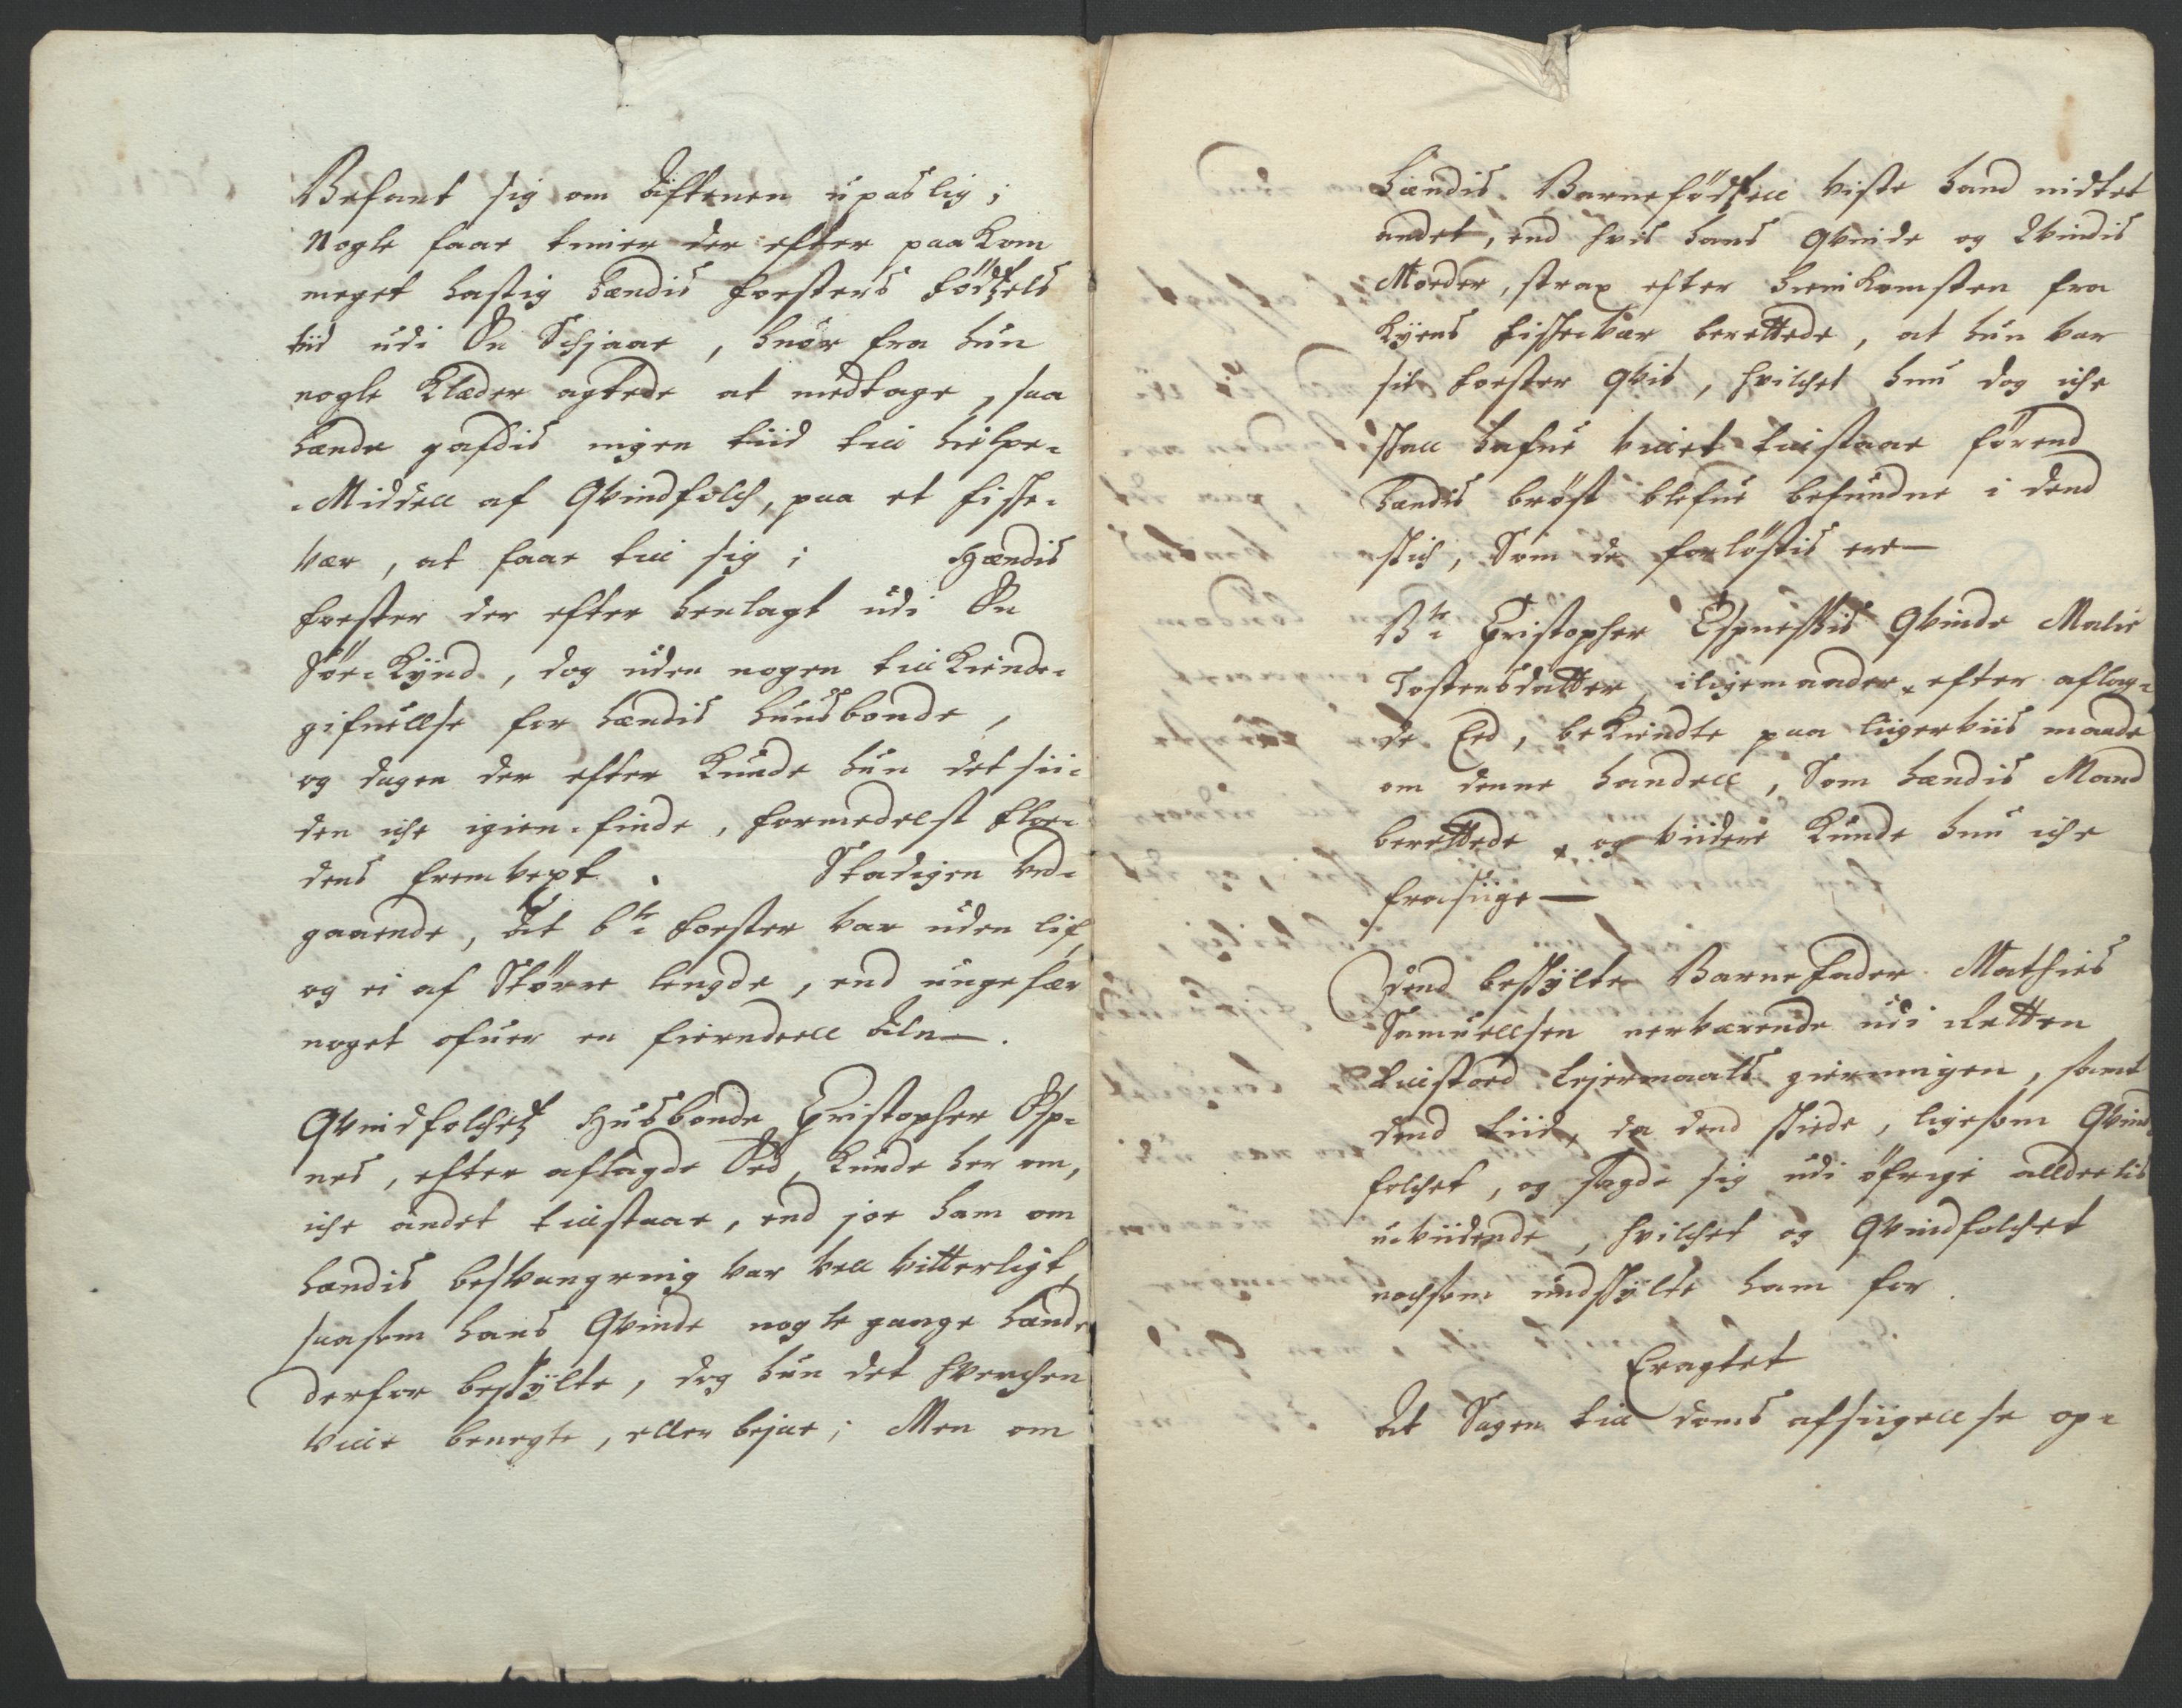 Befant sig om Aftenen upaslig;
Nogle faae timer der efter paakom
meget hastig hændis Foesters Födtzels
tiid udi En Schjaae, huor fra hun
nogle Klæder agtede at medtage, saa
hænde gafdis ingen tiid till hielpe-
-Middell af Qvindfolch, paa et fische-
vær, at faae till sig; Hændis
foester der efter henlagt udi En
Söe-Kynd, dog uden nogen tillkiende-
gifuellse for hændis huusbonde,
og dagen der efter Kunde hun det sii-
den iche igien finde, formedelst floe-
dens fremvext. Stadigen ved-
gaaende, At bte foester var uden lif,
og ei af Större lengde, end ungefær
noget ofuer en fierendeell Alen.
Qvindfolchetz Husbonde Christopher Esp-
nes, efter aflagde Eed, Kunde her om,
iche andet tillstaae, end joe ham om
hændis besvangring var vell vitterligt,
saasom hans Qvinde nogle gange hænde
derfor beskylte, dog hun det hverchen
ville benegte, eller bejae; Men om
hændis Barnefödtzell viste hand indtet
andet, end hvis hans Qvinde og Qvindis
Moeder, strax efter hiemkomsten fra
Kyens fischevær berettede, at hun var
sit foester qvit, hvilchet hun dog iche
skall hafue villet tillstaae förend
hændis bröst blefue befundne i dend
skich, Som de forlöstis ere
Bte Christopher Espneskis Qvinde Malie
Tostensdatter, iligemaader efter aflag-
de Eed, bekiendte paa liigerviis maade
om denne handell, Som hændis Mand
berettede, og viidere Kunde hun iche
frasiige
Dend beskylte Barnefader Mathies
Samuellsen nerværende udi Retten
tillstoed Lejermaals gierningen, samt
dend tiid, da dend skiede, ligesom Qvind
folchet, og sagde sig udi öfrigt alldeelis
u-viidende, hvilchet og Qvindfolchet
nochsom undskylte ham for.
Eragtet
At Sagen till doms afsiigellse op-